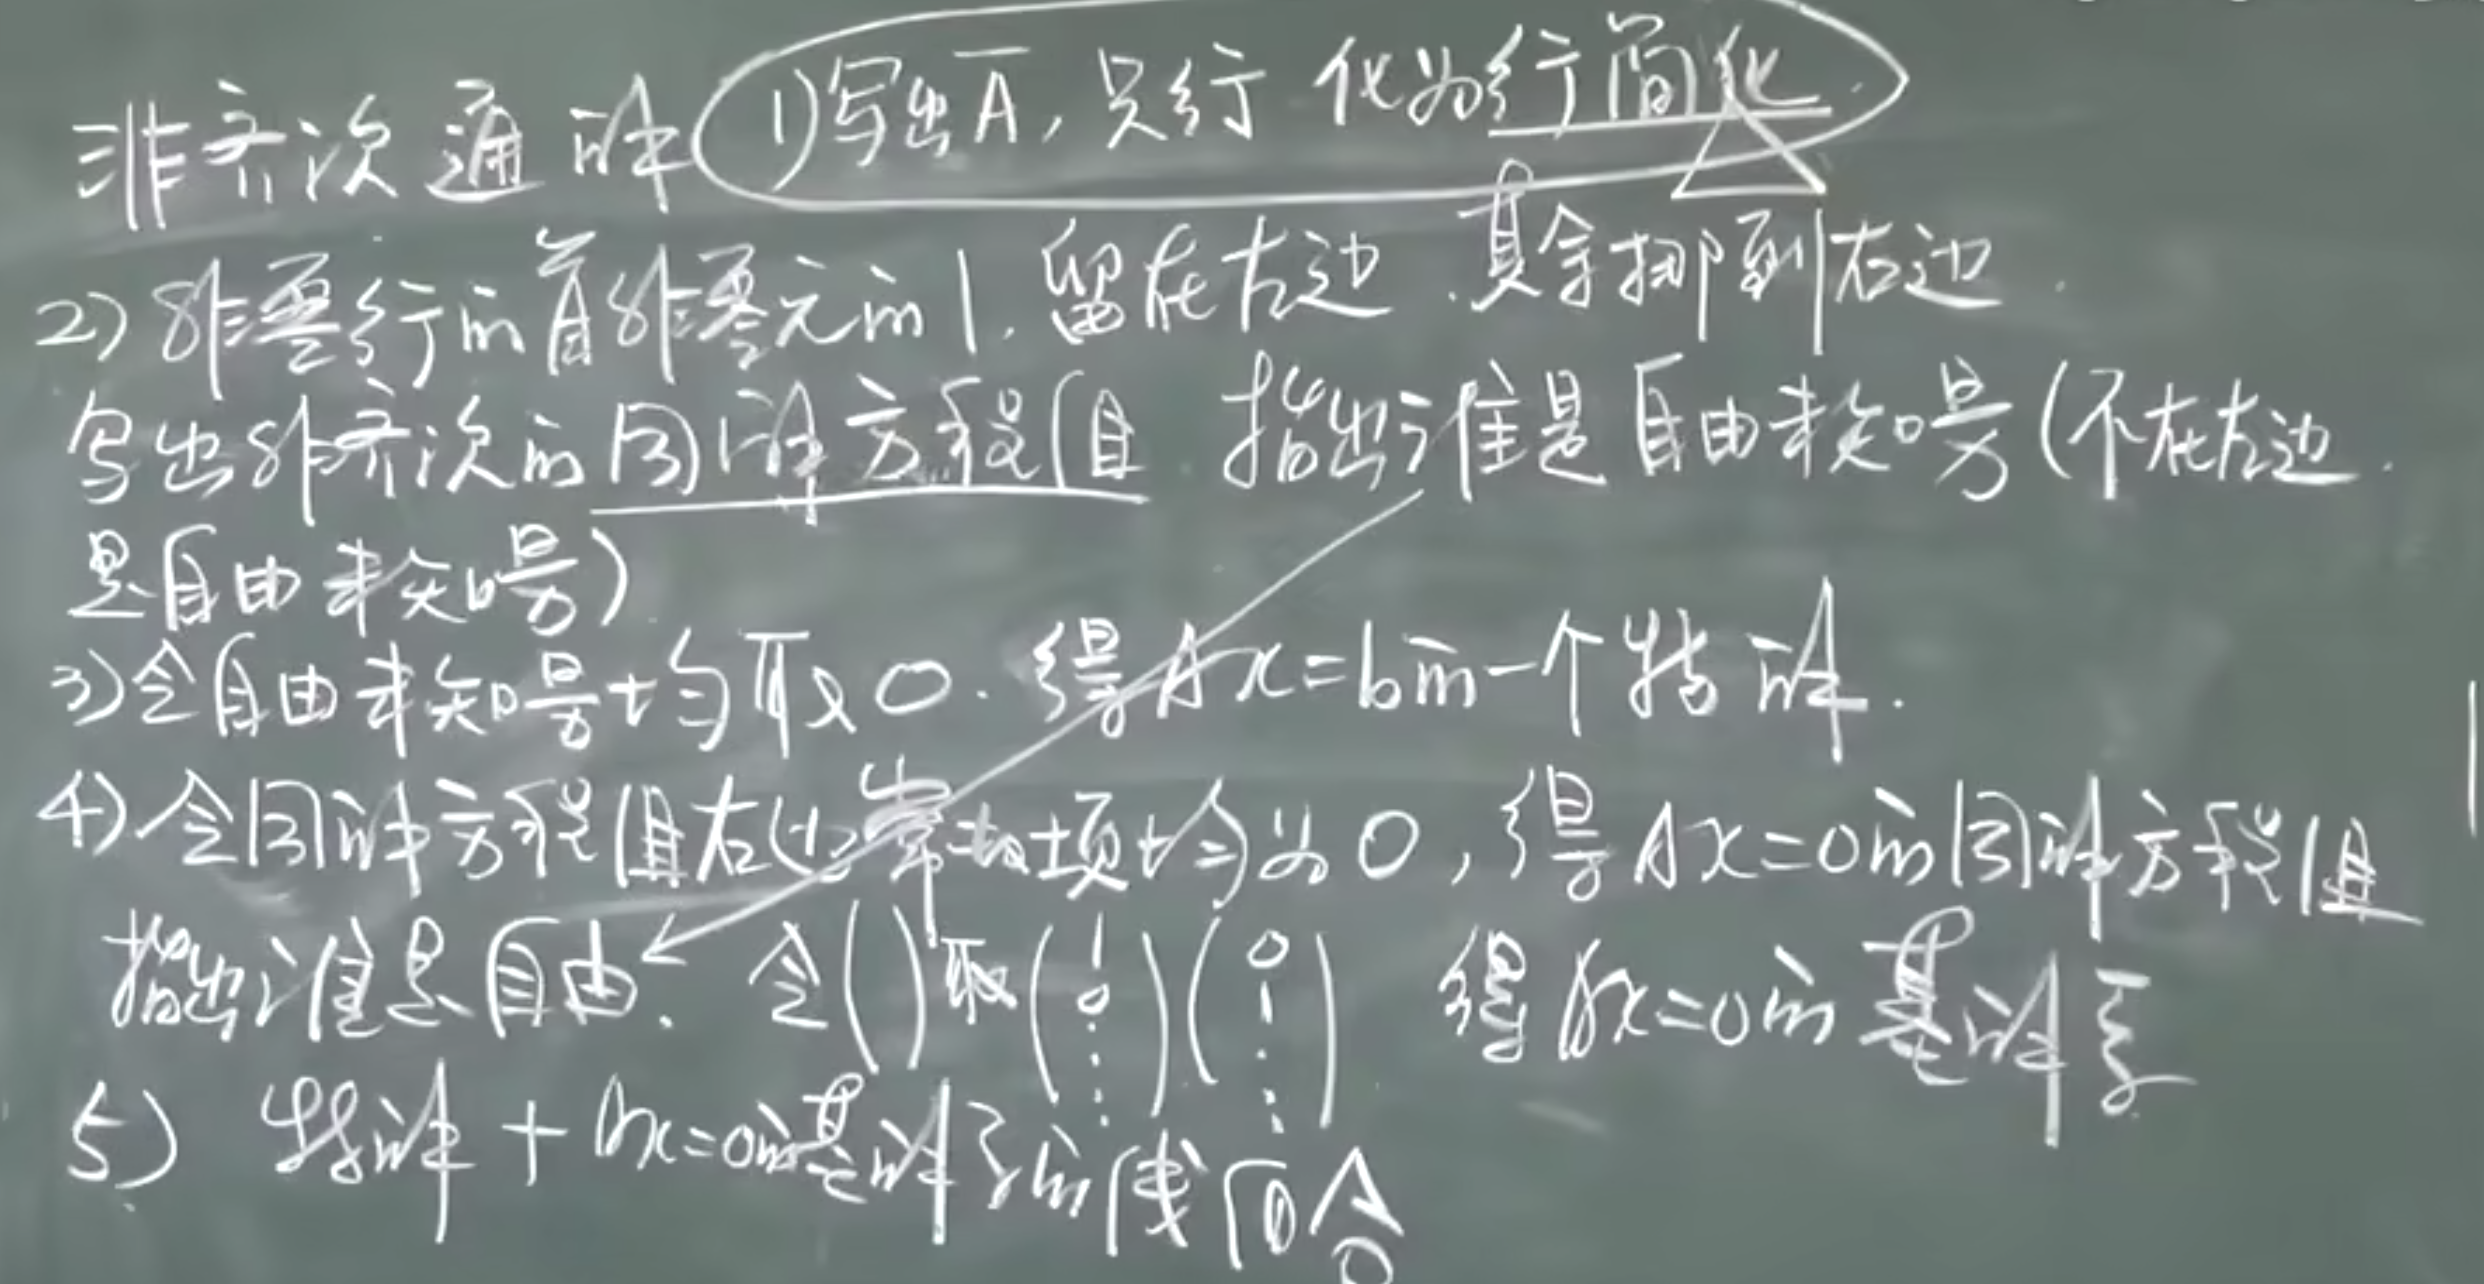 非齐次通解 1)写出Ā，只行 化为行简化.
2) 非零行的首非零元的1，留在左边．其余挪到右边．
写出非齐次的同解方程组 指出谁是自由未知量(不在左边．
是自由未知量)
3)令自由未知量均取0．得Ax=b的一个特解．
4)令同解方程组右边常数项均为0，得Ax=0的同解方程组
指出谁是自由．令( )取(1 0 ⋮)(0 1 ⋮) 得Ax=0的基解系
5) 特解 + Ax=0的基解系的线何合